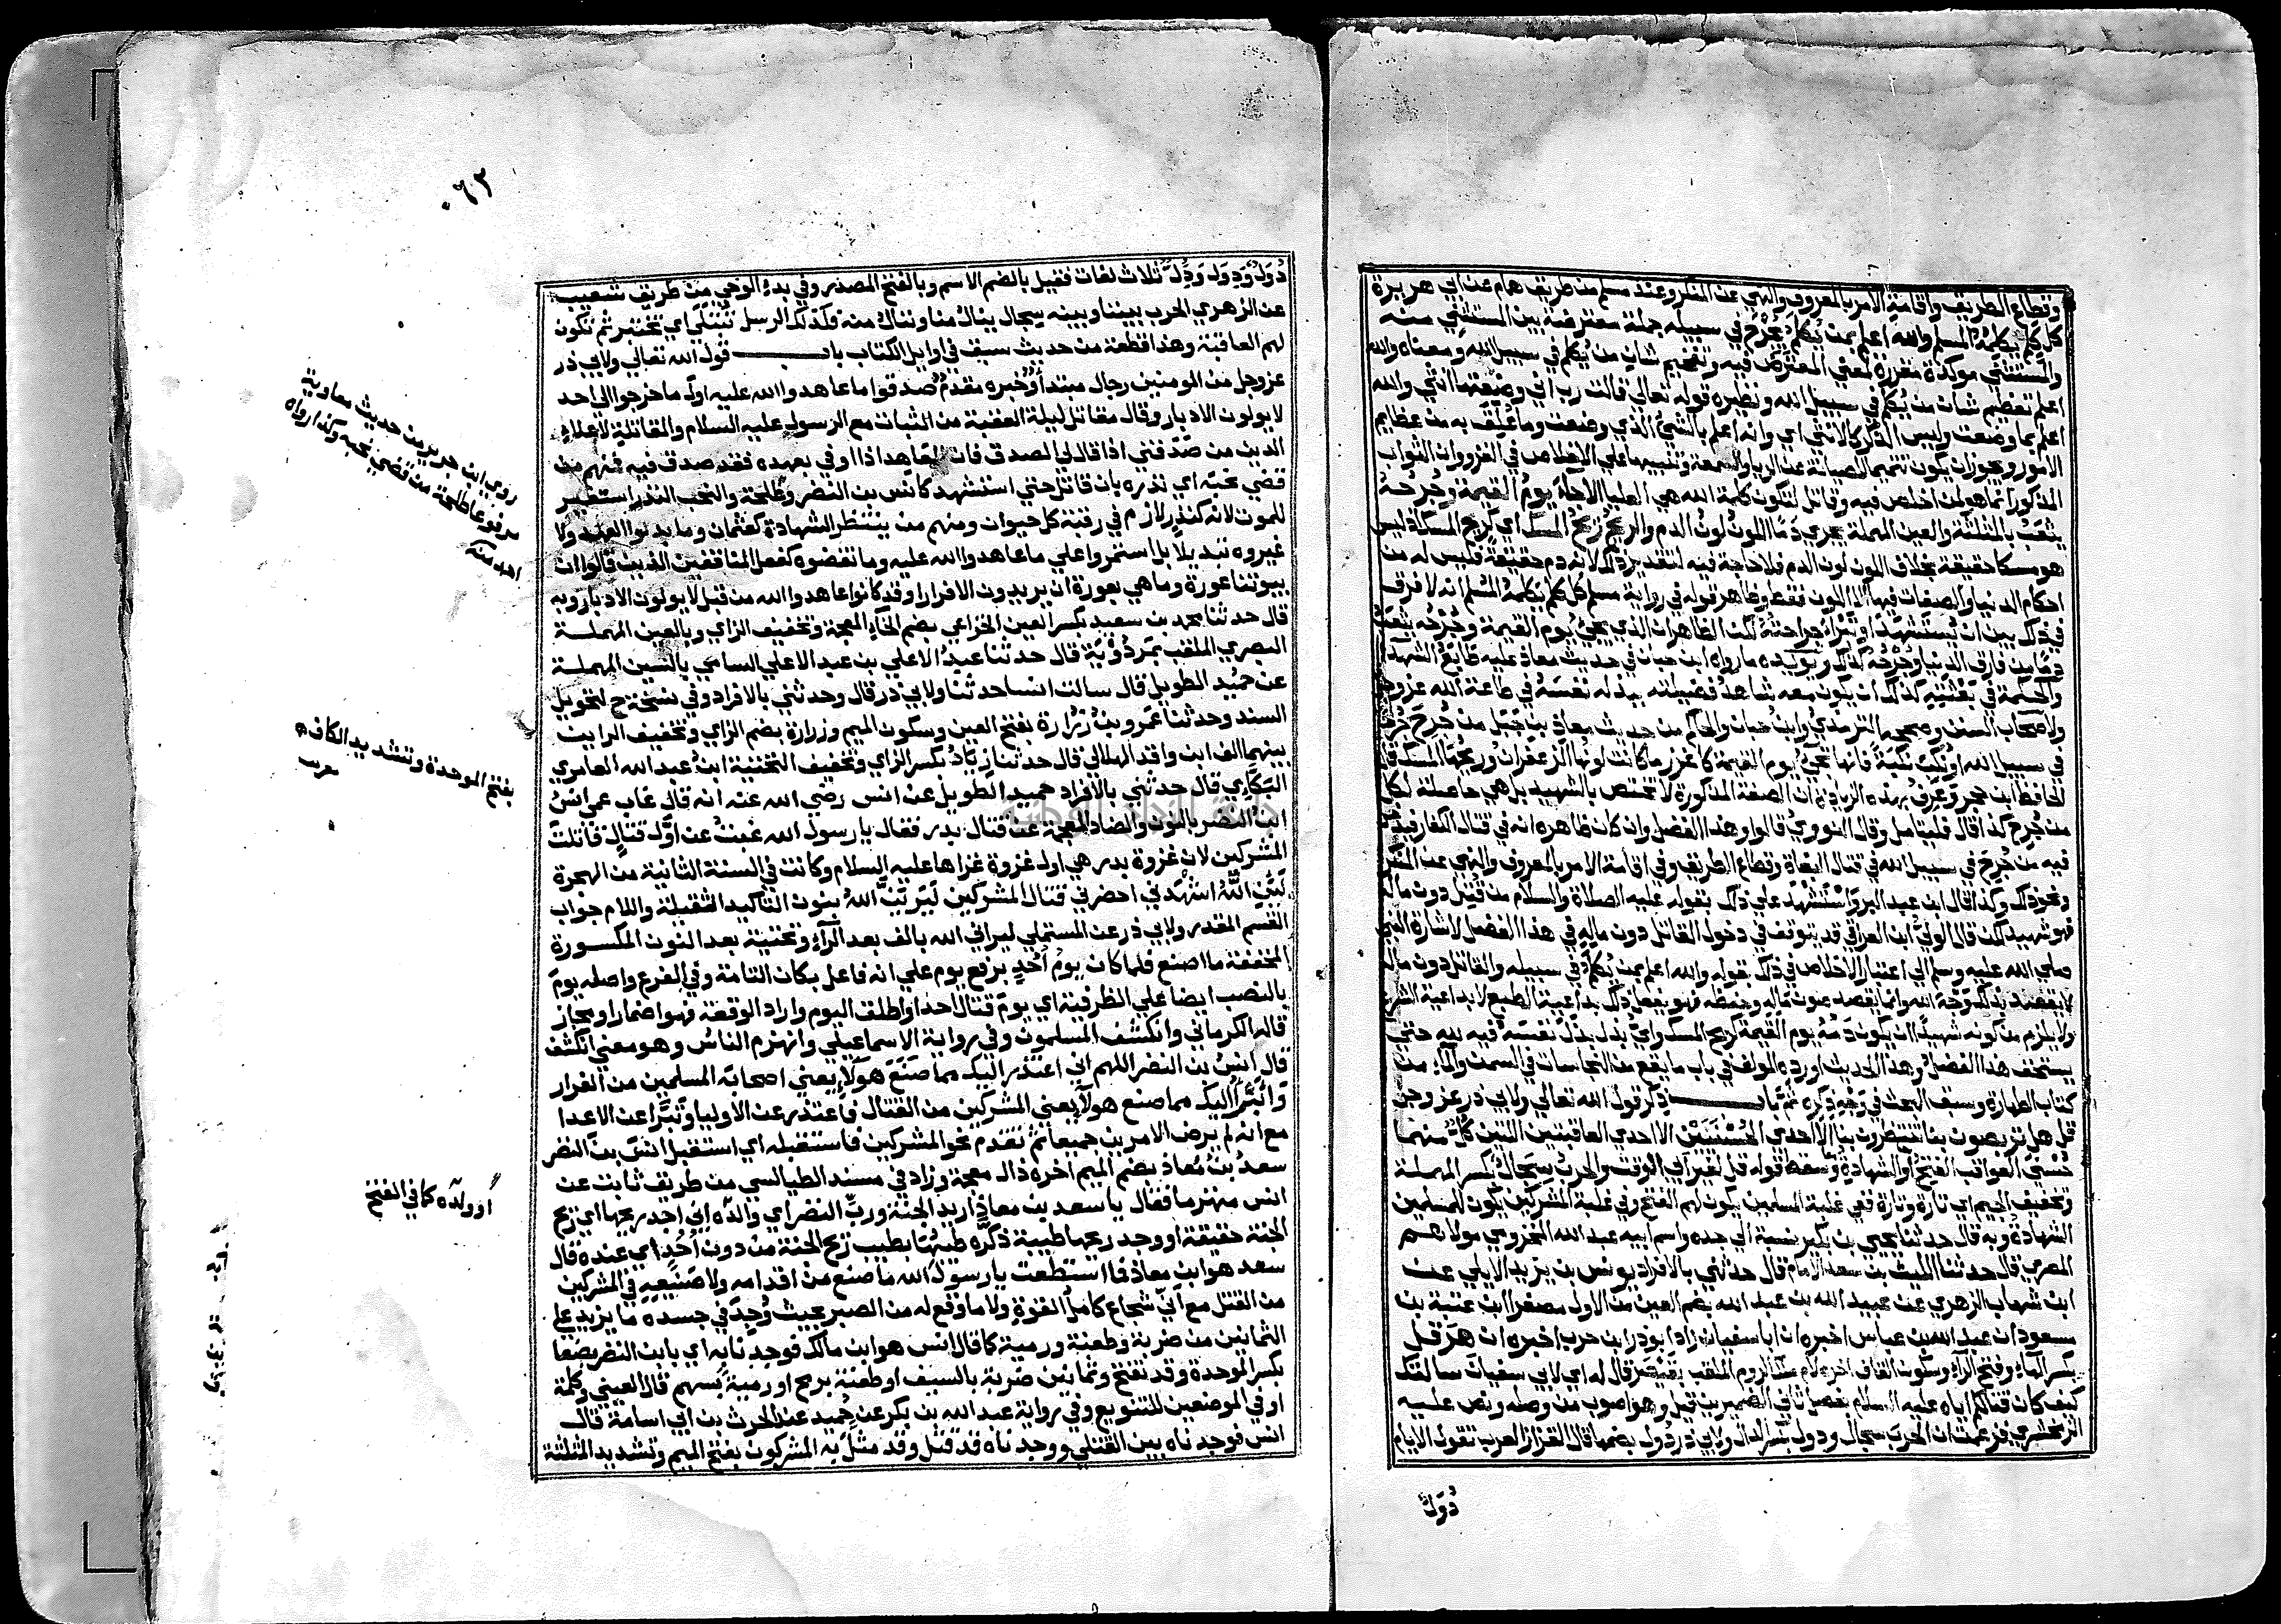 وقطاع الطريق واقامة الامر بالمعروف والنهي عن المنكر وعند مسلم من طريق همام عن ابي هريرة
كل كلم يكلمه المسلم والله اعلم بمن يُكلم يجرح في سبيله جملة معترضة بين المستثني منه
والمستثني موكدة مقررة لمعني المعترض فيه وتفخيم شان من يُكلم في سبيل الله ومعناه والله
اعلم تعظيم شان من يُكلم في سبيل الله ونظيره قوله تعالي قالت رب اني وضعتها انثي والله
اعلم بما وضعت وليس الذكر كالانثي اي والله اعلم بالشي الذي وضعت وما علق به من عظايم
الامور ويجوز ان يكون تتميما للصيانة عن الريا والسمعة وتنبيها علي الاخلاص في الغزو وان الثواب
المذكور انما هو لمن اخلص فيه وقاتل لتكون كلمة الله هي العليا الا جاء يوم القيمة وجرحه
يثعب بالمثلثة والعين المهملة يجري دما اللون لون الدم والريح ريح المسك اي كريح المسك اذ ليس
هو مسكا حقيقة بخلاف اللون لون الدم فلا حاجة فيه لتقدير ذلك لانه دم حقيقة فليس له من
احكام الدنيا والصفات فيها الا اللون فقط وظاهر قوله في رواية مسلم كل كلم يكلمه المسلم انه لا فرق
في ذلك بين ان يُستشهد او تبرا جراحته لكن الظاهر ان الذي يجيُ يوم القيمة وجُرحُه يثعب
دما من فارق الدنيا وجرحه كذلك ويويده ما رواه ابن حبان في حديث معاذ عليه طابع الشهدا
والحكمة في بعثته كذلك ان يكون معه شاهد فضيلته ببذله نفسه في طاعة الله عز وجل
ولاصحاب السنن وصححه الترمذي وابن حبان والحاكم من حديث معاذ بن جبل من جُرح جُرحا
في سبيل الله او نُكب نكبة فانها تجيُ يوم القيمة كاغزر ما كانت لونها الزعفران وريحها المسك قال
الحافظ ابن حجر وعرف بهذه الزيادة ان الصفة المذكورة لا تختص بالشهيد بل هي حاصلة لكل
من جُرح كذا قال فليتامل وقال النووي قالوا وهذا الفضل وان كان ظاهره انه في قتال الكفار فيدخل
فيه من جرح في سبيل الله في قتال البغاة وقطاع الطريق وفي اقامة الامر بالمعروف والنهي عن المنكر
ونحو ذلك وكذا قال ابن عبد البر واستشهد علي ذلك بقوله عليه الصلاة والسلام من قُتل دون ماله
فهو شهيد لكن قال الولي ابن العراقي قد يتوقف في دخول القاتل دون ماله في هذا الفضل لاشارة النبي
صلي الله عليه وسلم الي اعتبار الاخلاص في ذلك بقوله والله اعلم بمن يُكلم في سبيله والقاتل دون ماله
لا يقصد بذلك وجه الله وانما يقصد صون ماله وحفظه فهو يفعل ذلك بداعية الطبع لا بداعية الشرع
ولا يلزم من كونه شهيدا ان يكون دمه يوم القيمة كريح المسك واي بذل بذل نفسه فيه لله حتي
يستحق هذا الفضل وهذا الحديث اورده المولف في باب ما يقع من النجاسات في السمن والماء من
كتاب الطهارة وسبق البحث في وجه ذكره ثم باب ذكر قول الله تعالي ولابي ذر عز وجل
قل هل تربصون بنا تنتظرون بنا الا احدي الحسنيين الا احدي العاقبتين اللتين كل منهما
حُسني العواقب الفتح او الشهادة وسقط قوله قل لغير ابي الوقت والحرب سجال بكسر المهملة
وتخفيف الجيم اي تارة وتارة ففي غلبة المسلمين يكون لهم الفتح وفي غلبة المشركين يكون للمسلمين
الشهادة وبه قال حدثنا يحيي بن بكير نسبة الي جده واسم ابيه عبد الله المخزومي مولاهم
المصري قال حدثنا الليث بن سعد الامام قال حدثني بالافراد يونس بن يزيد الايلي عن
ابن شهاب الزهري عن عبيد الله بن عبد الله بضم العين من الاول مصغرا ابن عتبة بن
مسعود ان عبد الله بن عباس اخبره ان ابا سفيان زاد ابو ذر ابن حرب اخبره ان هرقل
بكسر الهاء وفتح الراء وسكون القاف اخره لام ملك الروم الملقب بقيصر قال له اي لابي سفيان سالتك
كيف كان قتالكم اياه عليه السلام بفصل ثاني الضميرين قيل وهو اصوب من وصله ونص عليه
الزمخشري فزعمت ان الحرب سجال ودول بكسر الدال ولابي ذر دُول بضمها قال القزاز العرب تقول الايام
دُوَل
٠٦٢
دُوَل ودِوَل ودَُِل ثلاث لغات فقيل بالضم الاسم وبالفتح المصدر وفي بدء الوحي من طريق شعيب
عن الزهري الحرب بيننا وبينه سجال ينال منا وننال منه فكذلك الرسل تُبتلي اي تختبر ثم تكون
لهم العاقبة وهذا قطعة من حديث سبق في اوايل الكتاب باب قول الله تعالي ولابي ذر
عز وجل من المومنين رجال مبتدا وخبره مقدم صدقوا ما عاهدوا الله عليه اول ما خرجوا الي احد
لا يولون الادبار وقال مقاتل ليلة العقبة من الثبات مع الرسول عليه السلام والمقاتلة لاعلاء
الدين من صدقني اذا قال لي الصدق فان المعاهد اذا اوفي بعهده فقد صدق فيه فمنهم من
قضي نحبه اي نذره بان قاتل حتي استشهد كانس بن النضر وطلحة والنحب النذر استعير
للموت لانه كنذر لازم في رقبة كل حيوان ومنهم من ينتظر الشهادة كعثمان وما بدلوا العهد ولا
غيروه تبديلا بل استمروا علي ما عاهدوا الله عليه وما نقضوه كفعل المنافقين الذين قالوا ان
بيوتنا عورة وما هي بعورة ان يريدون الا فرارا وقد كانوا عاهدوا الله من قبل لا يولون الادبار وبه
قال حدثنا محمد بن سعيد بكسر العين الخزاعي بضم الخاء المعجمة وتخفيف الزاي وبالعين المهملة
البصري الملقب بمردُويَة قال حدثنا عبد الاعلي بن عبد الاعلي السامي بالسين المهملة
عن حميد الطويل قال سالت انسا حدثنا ولابي ذر قال وحدثني بالافراد وفي نسخة ح لتحويل
السند وحدثنا عمرو بن زرارة بفتح العين وسكون الميم وزرارة بضم الزاي وتخفيف الراين
بينهما الف ابن واقد الهلالي قال حدثنا زياد بكسر الزاي وتخفيف التحتية ابن عبد الله العامري
البكاي قال حدثني بالافراد حميد الطويل عن انس رضي الله عنه انه قال غاب عمي انس
ابن النضر بالنون والضاد المعجمة عن قتال بدر فقال يا رسول الله غبت عن اول قتال قاتلت
المشركين لان غزوة بدر هي اول غزوة غزاها عليه السلام وكانت في السنة الثانية من الهجرة
لين الله اشهدني احضرني قتال المشركين ليرين الله بنون التاكيد الثقيلة واللام جواب
القسم المقدر ولابي ذر عن المستملي ليراني الله بالف بعد الراء وتحتية بعد النون المكسورة
المخففة ما اصنع فلما كان يومُ أُحُدٍ برفع يوم علي انه فاعل بكان التامة وفي الفرع واصله يومَ
بالنصب ايضا علي الظرفية اي يوم قتال احد او اطلق اليوم واراد الوقعة فهو اضمار او مجاز
قاله الكرماني وانكشف المسلمون وفي رواية الاسماعيلي وانهزم الناس وهو معني انكشف
قال انس بن النضر اللهم اني اعتذر اليك مما صنع هولاء يعني اصحابه المسلمين من الفرار
وابرأ اليك مما صنع هولاء يعني المشركين من القتال فاعتذر عن الاوليا وتبرا عن الاعدا
مع انه لم يرض الامرين جميعا ثم تقدم نحو المشركين فاستقبله اي استقبل انس بن النضر
سعدُ بن معاذ بضم الميم اخره ذال معجمة وزاد في مسند الطيالسي من طريق ثابت عن
انس منهزما فقال يا سعد بن معاذ اريد الجنة وربِّ النضر اي والده اني اجد ريحها اي ريح
الجنة حقيقة او وجد ريحا طيبة ذكّره طيبُها بطيب ريح الجنة من دون أُحُد اي عنده قال
سعد هو ابن معاذ فما استطعت يا رسول الله ما صنع من اقدامه ولا صنيعه في المشركين
من القتل مع اني شجاع كامل القوة ولا ما وقع له من الصبر بحيث وُجِد في جسده ما يزيد علي
الثمانين من ضربة وطعنة ورمية كما قال انس هو ابن مالك فوجدنا به اي بابن النضر بضعا
بكسر الموحدة وقد تفتح وثمانين ضربة بالسيف او طعنة برمح او رمية بسهم قال العيني وكلمة
او في الموضعين للتنويع وفي رواية عبد الله بن بكر عن حميد عند الحرث بن ابي اسامة قال
انس فوجدناه بين القتلي ووجدناه قد قتل وقد مثل به المشركون بفتح الميم وتشديد المثلثة
روي ابن جرير من حديث معاوية
مرفوعا طلحة ممن قضي نحبه وكذا رواه
بفتح الموحدة وتشديد الكاف
او ولده كما في الفتح